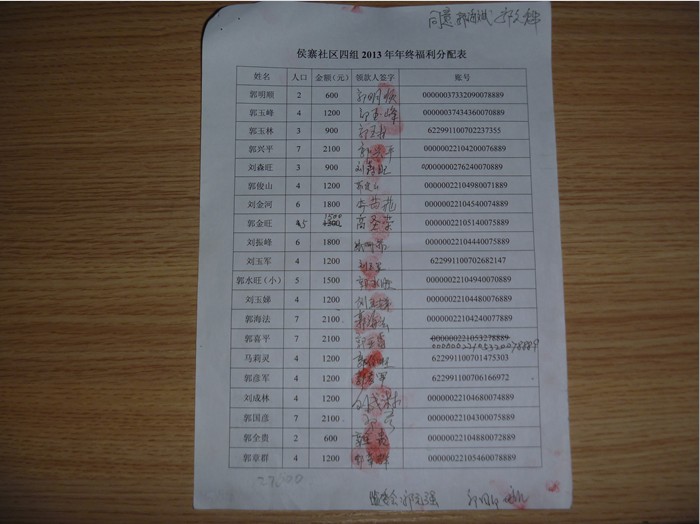 同意
侯寨社区四组 2013 年年终福利分配表
姓名 人口 金额(元) 领款人签字 账号
郭明顺 2 600 郭明顺 00000037332090078889
郭玉峰 4 1200 郭玉峰 00000037434360070889
郭玉林 3 900 郭玉林 622991100702237355
郭兴平 7 2100 00000022104200076889
刘森旺 3 900 刘森旺 0000000276240070889
郭俊山 4 1200 00000022104980071889
刘金河 6 1800 00000022104540074889
郭金旺 5 1500 高圣荣 00000022105140075889
刘振峰 6 1800 00000022104440075889
刘玉军 4 1200 刘玉军 622991100702682147
郭水旺(小) 5 1500 00000022104940070889
刘玉娣 4 1200 00000022104480076889
郭海法 7 2100 郭海法 00000022104240077889
郭喜平 7 2100 000000221053278889
00000022105320078889
马莉灵 4 1200 622991100701475303
郭彦军 4 1200 郭彦军 622991100706166972
刘成林 4 1200 刘成林 00000022104680074889
郭国彦 7 2100 00000022104300075889
郭全贵 2 600 00000022104880072889
郭章群 4 1200 郭章群 00000022105460078889